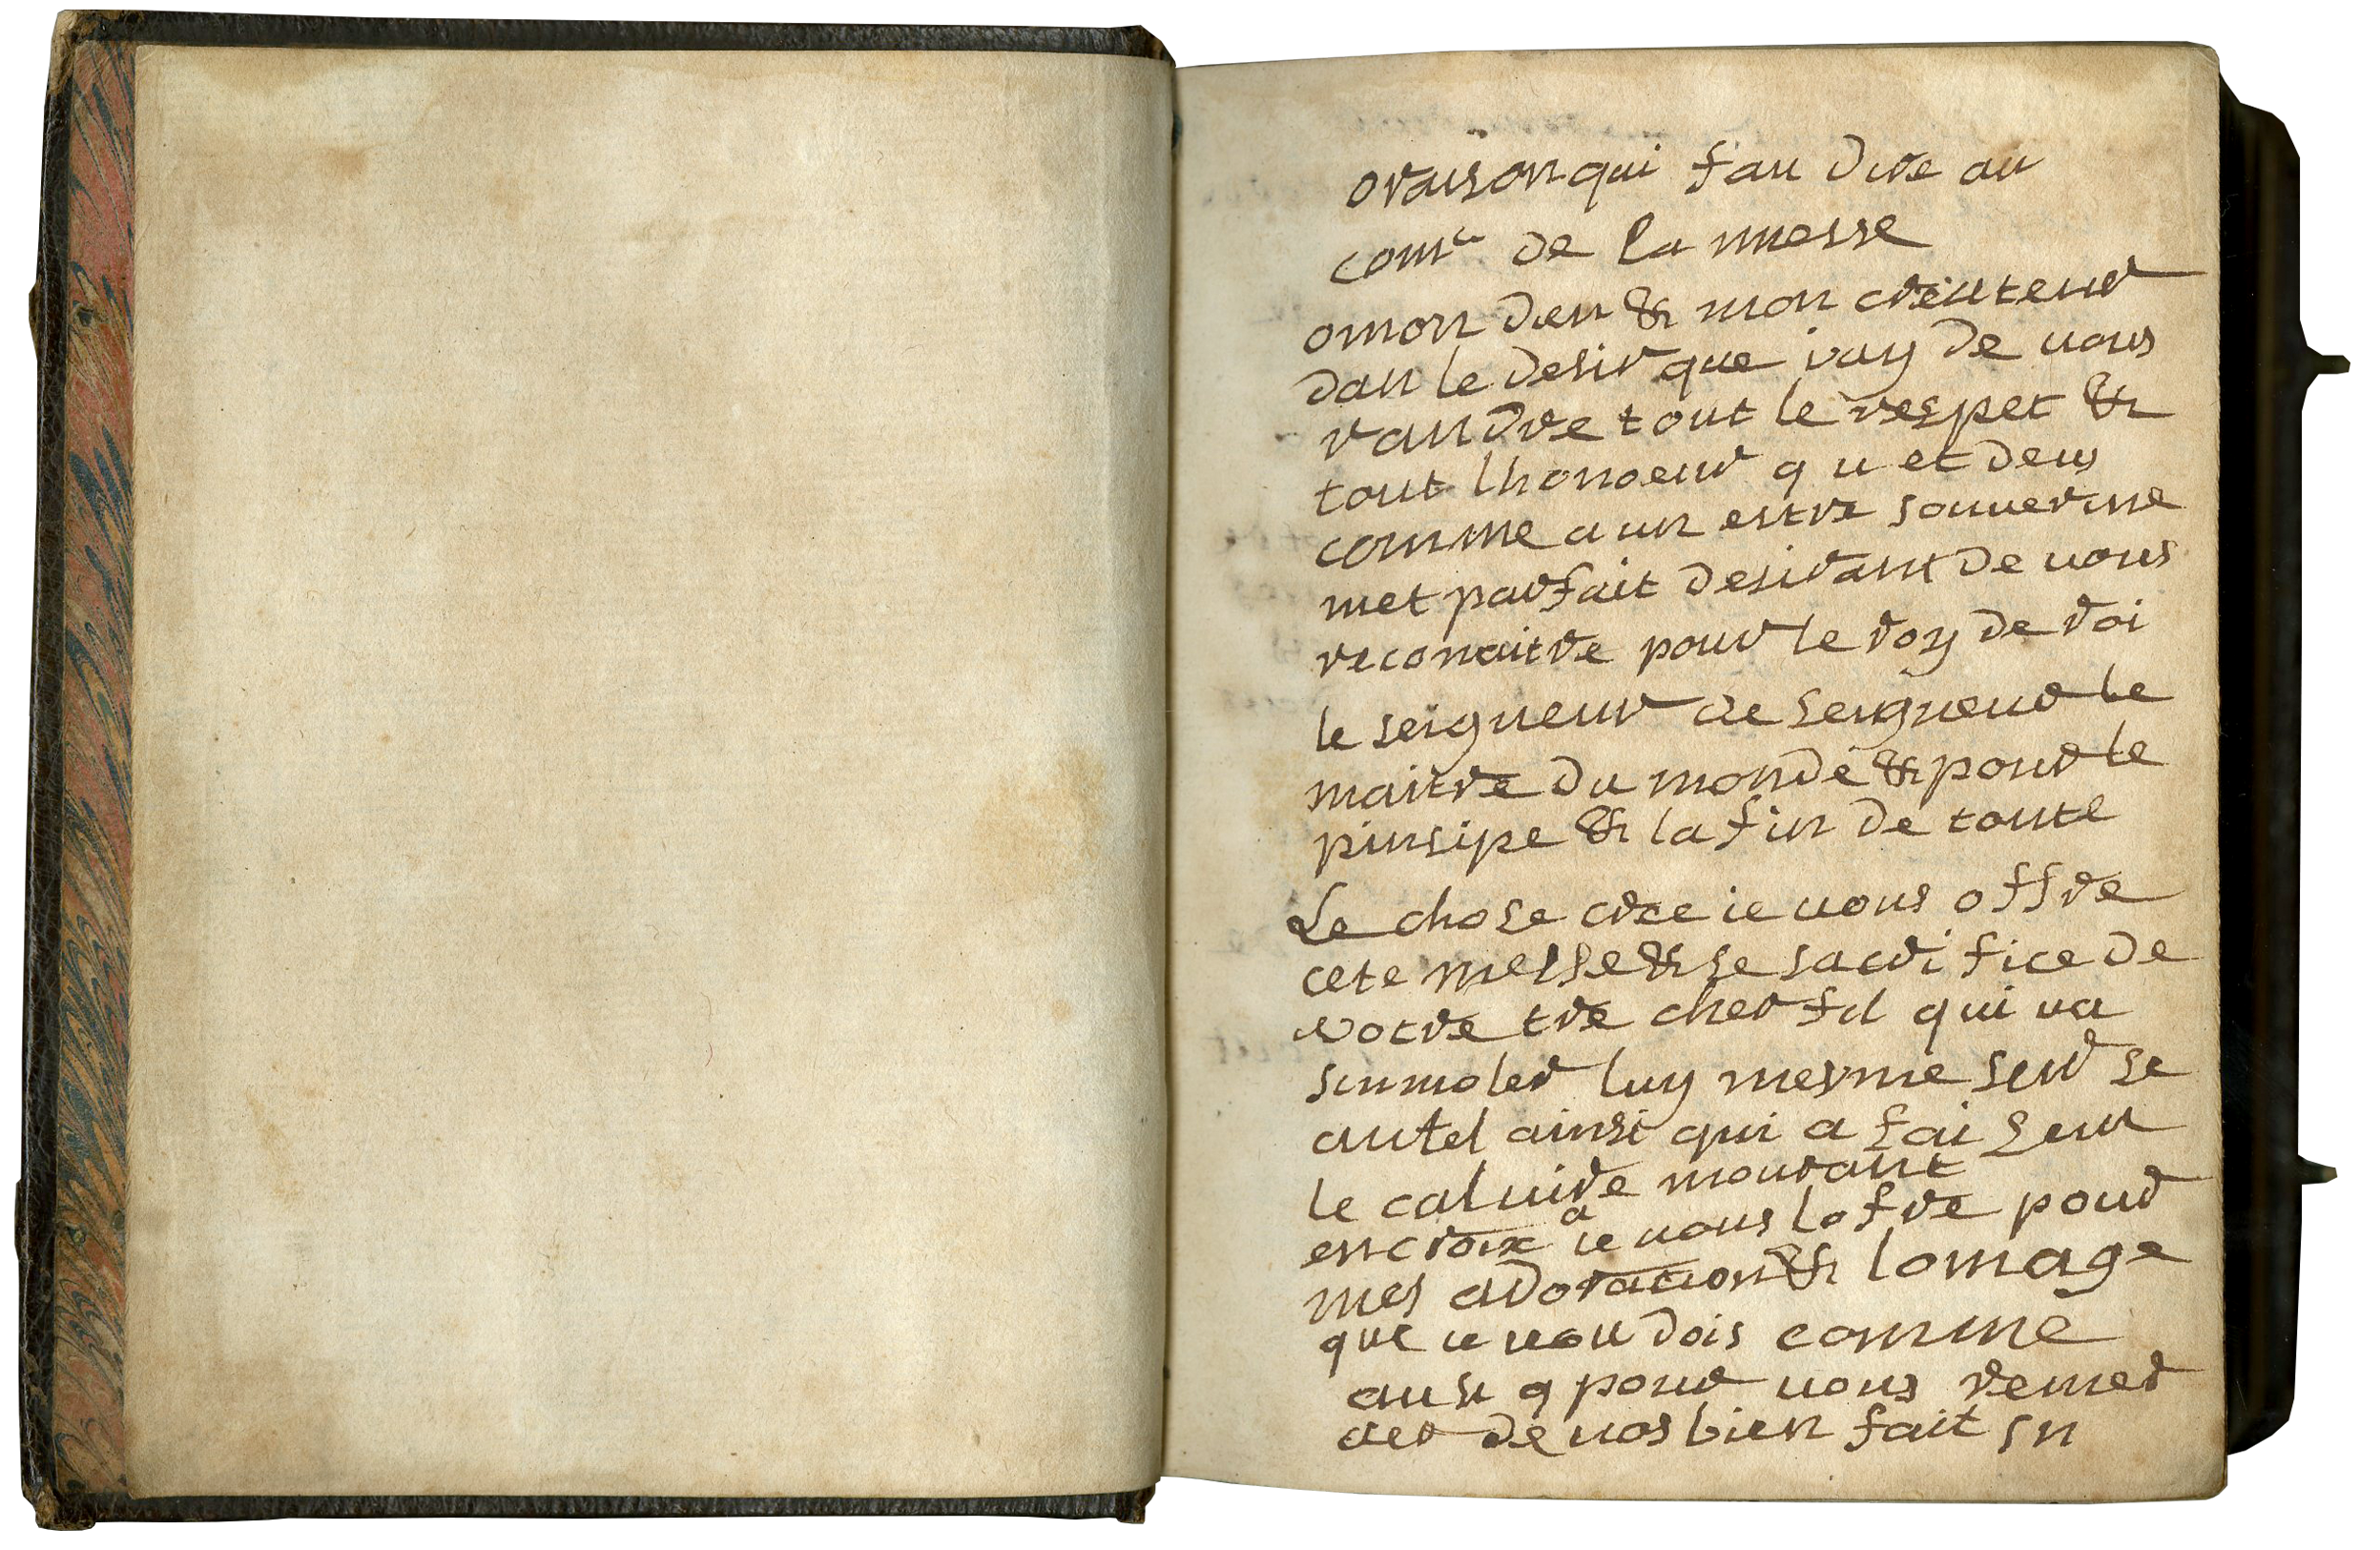 oraison qui fau dire au
com de la messe
omon dieu & mon creuteur
dan le desir que iay de uous
randre tout le respet &
tout lhonoeur qu et deus
comme a un estre souuerine
met parfait desirant de uous
reconaitre pour le roy de roi
le seigneur de seigneur le
maitre du monde & pour le
pinsipe & la fin de toute
Le chose cree ie uous offre
cete messe & se sacrifice de
votre tre cher fil qui ua
sinmoler luy mesme seur se
autel ainsi qui a fai seur
le caluire mourant
en croix a ie uous lofre pour
mes adoracion & lomage
que ie uou dois comme
ausi q pour uous remer
cier de uos bien fait